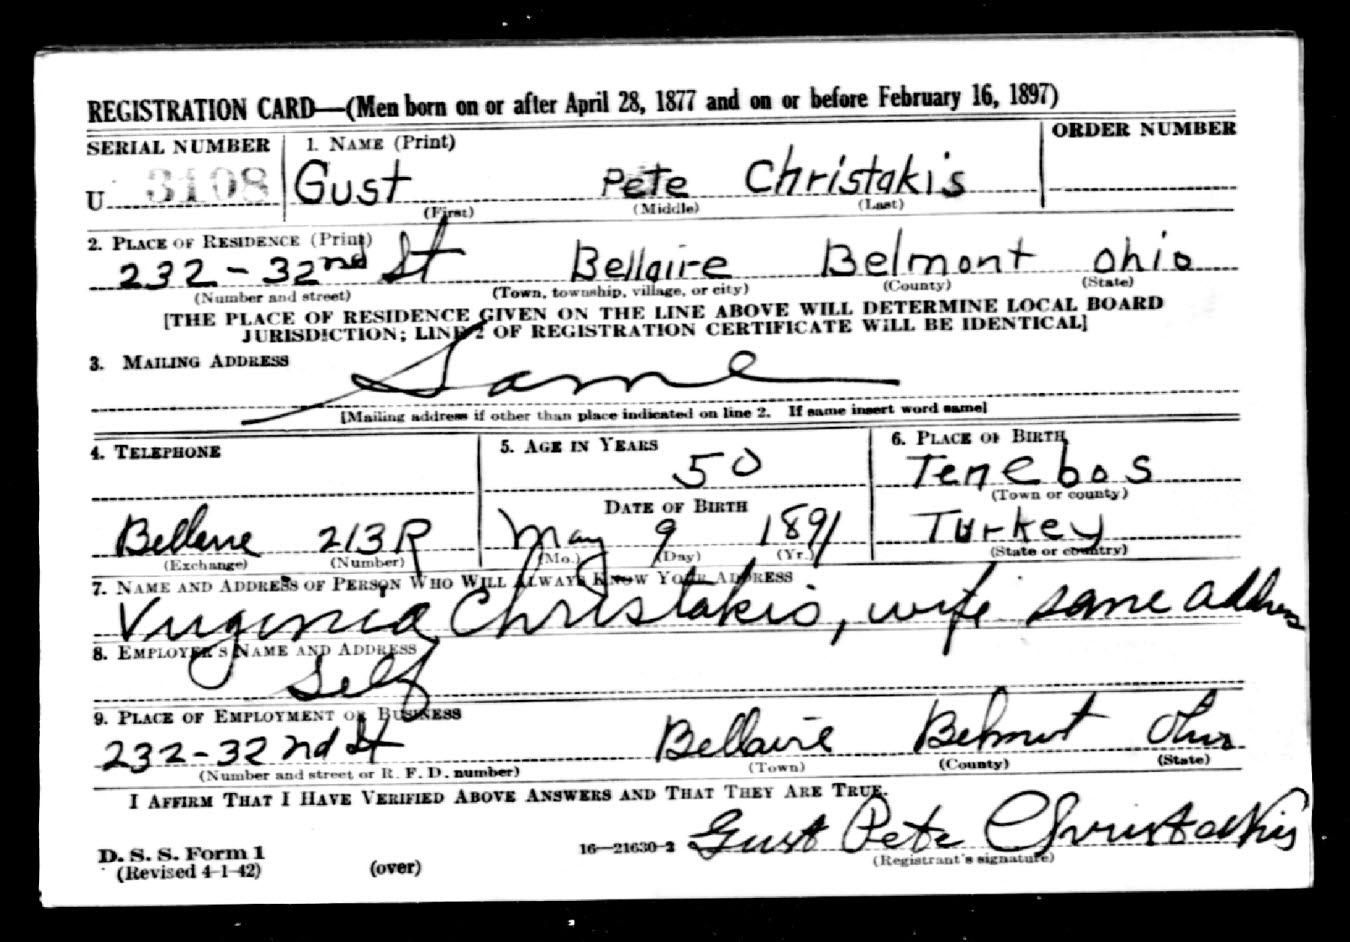 REGISTRATION CARD—(Men born on or after April 28, 1877 and on or before February 16, 1897)
SERIAL NUMBER 1. NAME (Print) ORDER NUMBER
U 3108 Gust Pete Christakis
(First) (Middle) (Last)
2. PLACE OF RESIDENCE (Print)
232 - 32nd St Bellaire Belmont Ohio
(Number and street) (Town, township, village, or city) (County) (State)
[THE PLACE OF RESIDENCE GIVEN ON THE LINE ABOVE WILL DETERMINE LOCAL BOARD
JURISDICTION; LINE 2 OF REGISTRATION CERTIFICATE WILL BE IDENTICAL]
3. MAILING ADDRESS
Same
[Mailing address if other than place indicated on line 2. If same insert word same]
4. TELEPHONE 5. AGE IN YEARS 6. PLACE OF BIRTH
50 Tenebos
DATE OF BIRTH (Town or county)
Bellaire 213R May 9 1891 Turkey
(Exchange) (Number) (Mo.) (Day) (Yr.) (State or country)
7. NAME AND ADDRESS OF PERSON WHO WILL ALWAYS KNOW YOUR ADDRESS
Virginia Christakis, wife same address
8. EMPLOYER'S NAME AND ADDRESS
Self
9. PLACE OF EMPLOYMENT OR BUSINESS
232-32nd St Bellaire Belmont Ohio
(Number and street or R. F. D. number) (Town) (County) (State)
I AFFIRM THAT I HAVE VERIFIED ABOVE ANSWERS AND THAT THEY ARE TRUE.
Gust Pete Christakis
D. S. S. Form 1 16—21630-2 (Registrant's signature)
(Revised 4-1-42) (over)